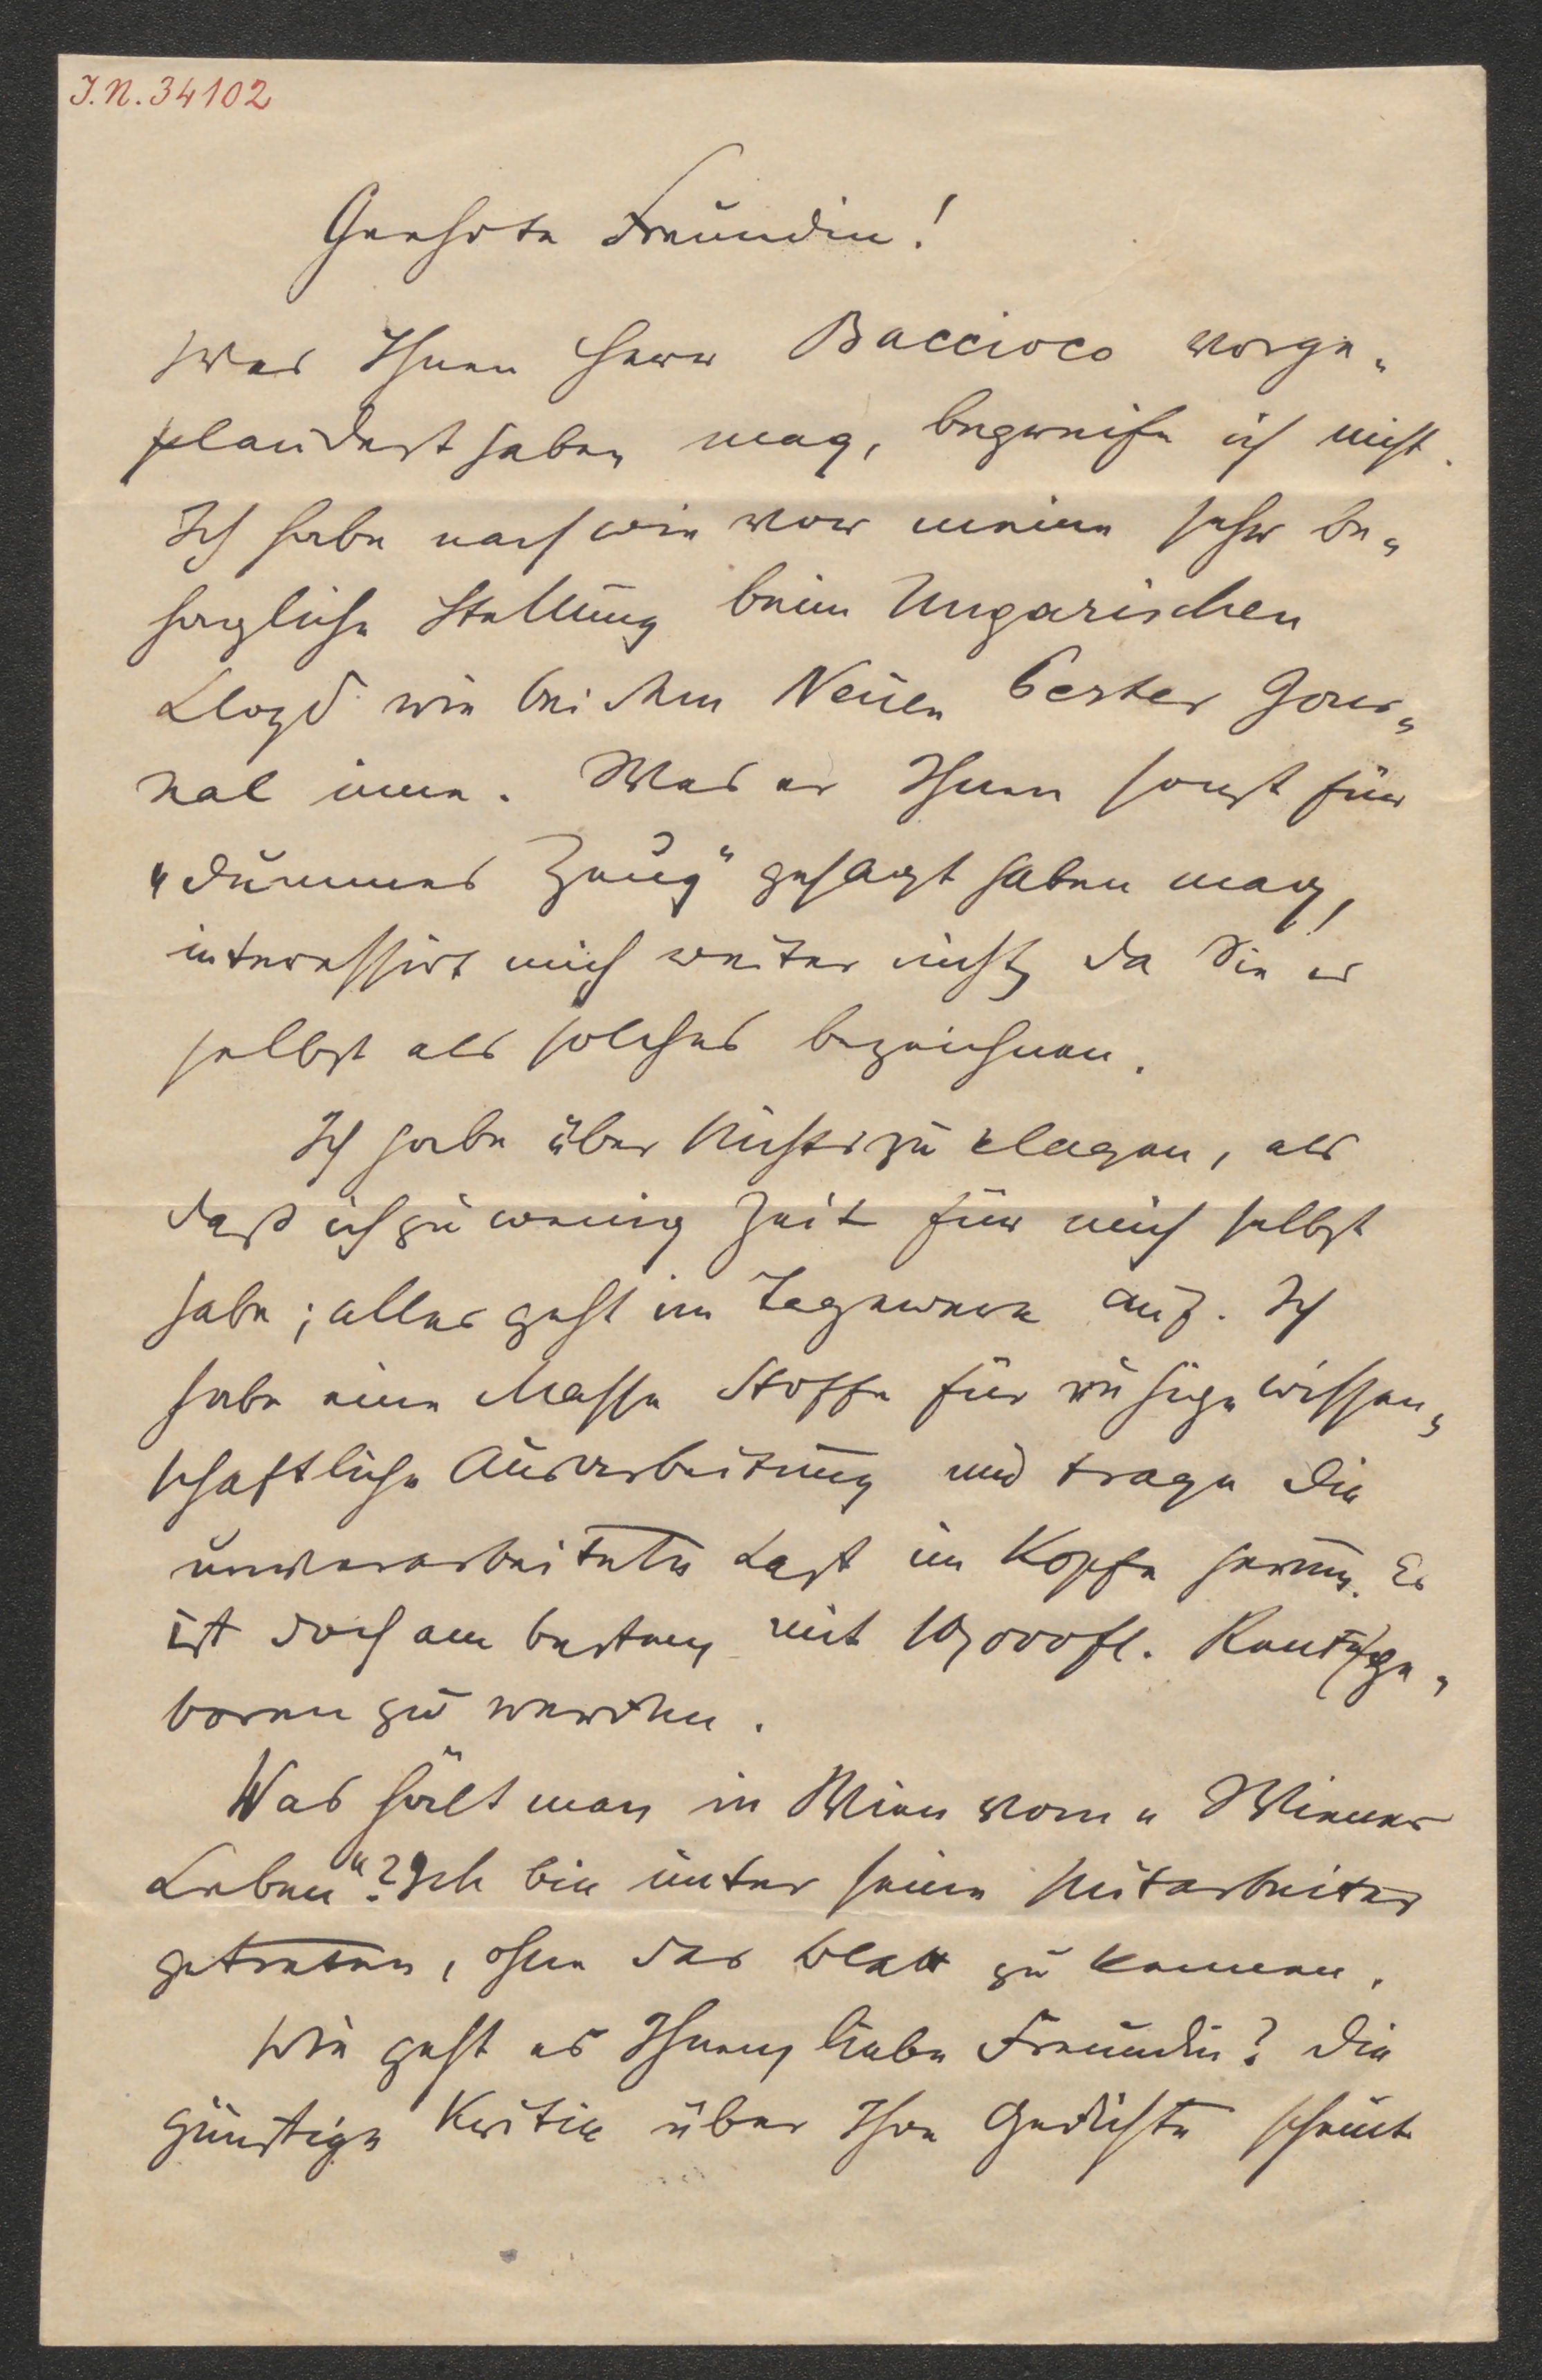 I.N. 34102
Geehrte Freundin!
Was Ihnen Herr Baccioco vorge-
plaudert haben mag, begreife ich nicht.
Ich habe nach wie vor meine sehr be-
hagliche Stellung beim Ungarischen
Lloyd wie bei dem Neuen Pester Jour-
nal inne. Was er Ihnen sonst für
"dummes Zeug" gesagt haben mag,
interessirt mich weiter nicht, da Sie es
selbst als solches bezeichnen.
Ich habe über Nichts zu klagen, als
daß ich zu wenig Zeit für mich selbst
habe; alles geht im Tagewerk auf. Ich
habe eine Masse Stoffe für ruhige wissen-
schaftliche Ausarbeitung und trage die
unverarbeitete Last im Kopfe herum. Es
ist doch am besten, mit 10,000 fl. Rente ge-
boren zu werden.
Was hält man in Wien vom "Wiener
Leben"? Ich bin unter seine Mitarbeiter
getreten, ohne das Blatt zu kennen.
Wie geht es Ihnen, liebe Freundin? Die
günstige Kritik über Ihre Gedichte scheint